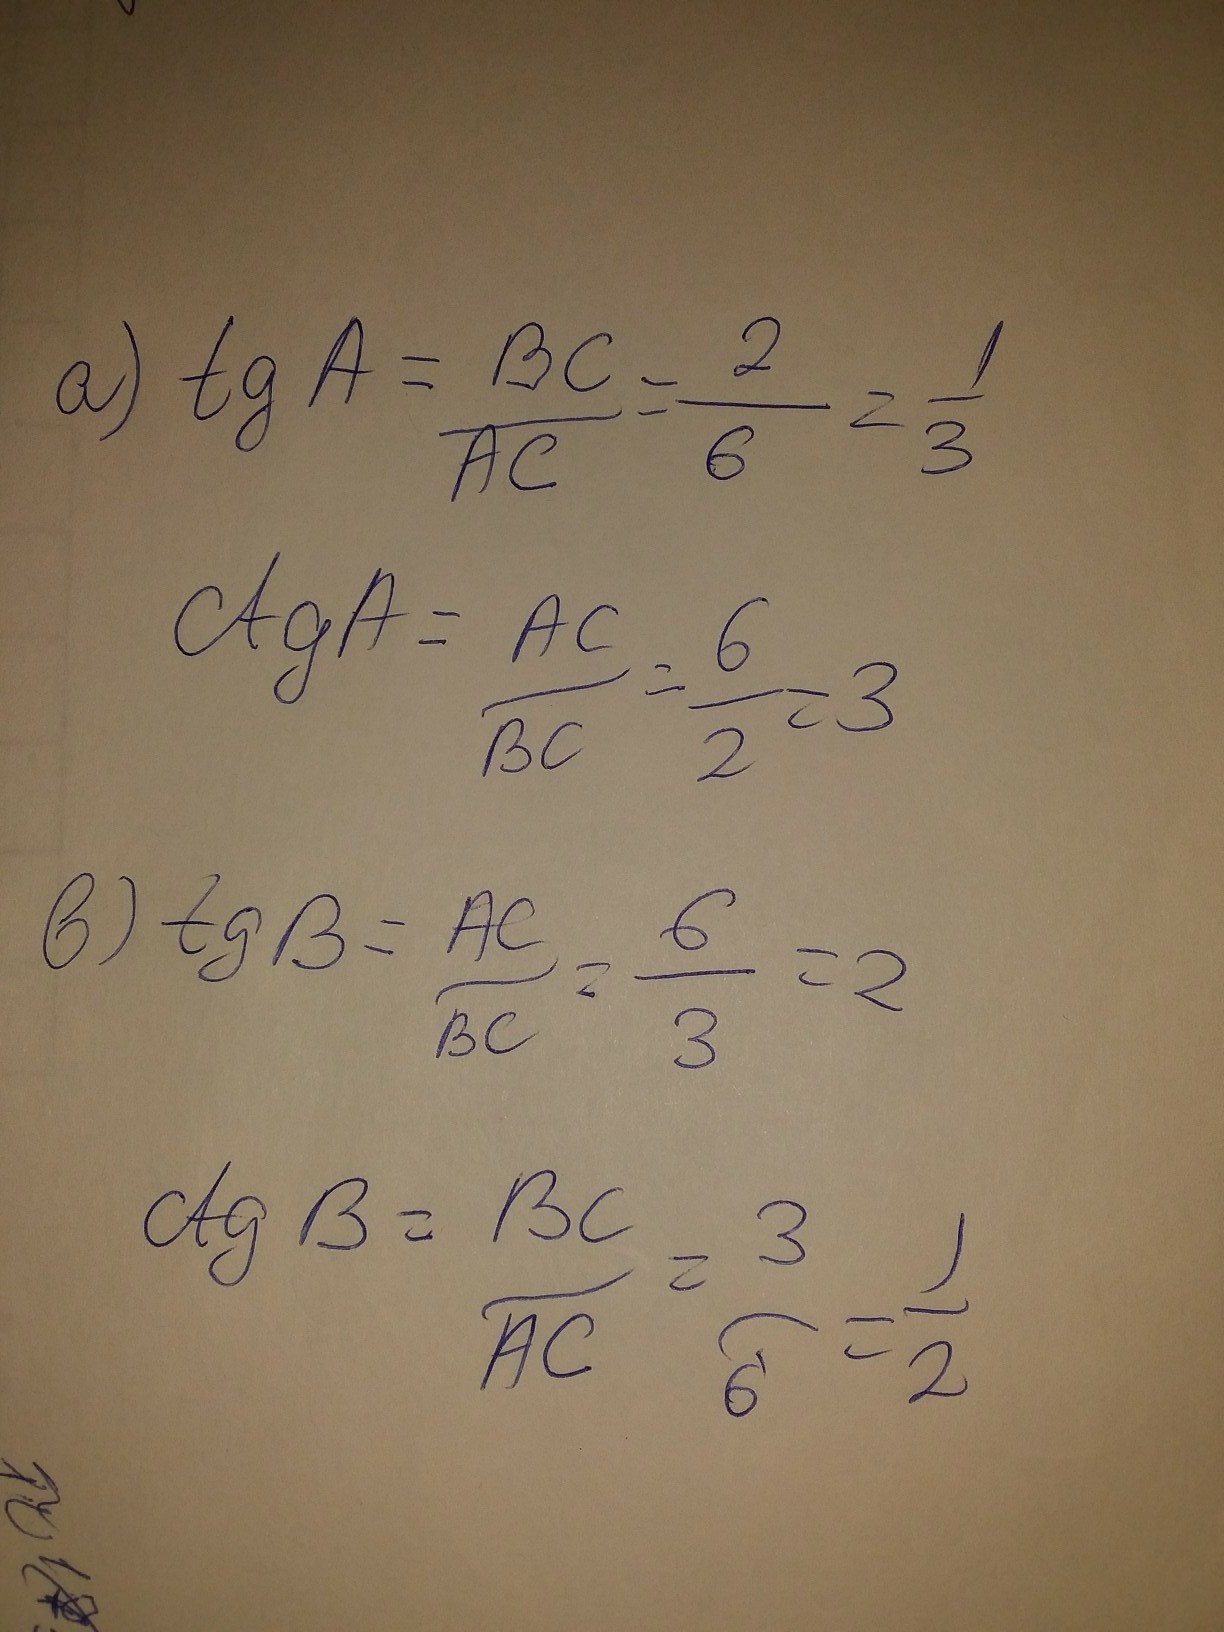 а) tg A = BC/AC = 2/6 = 1/3
ctg A = AC/BC = 6/2 = 3
в) tg B = AC/BC = 6/3 = 2
ctg B = BC/AC = 3/6 = 1/2